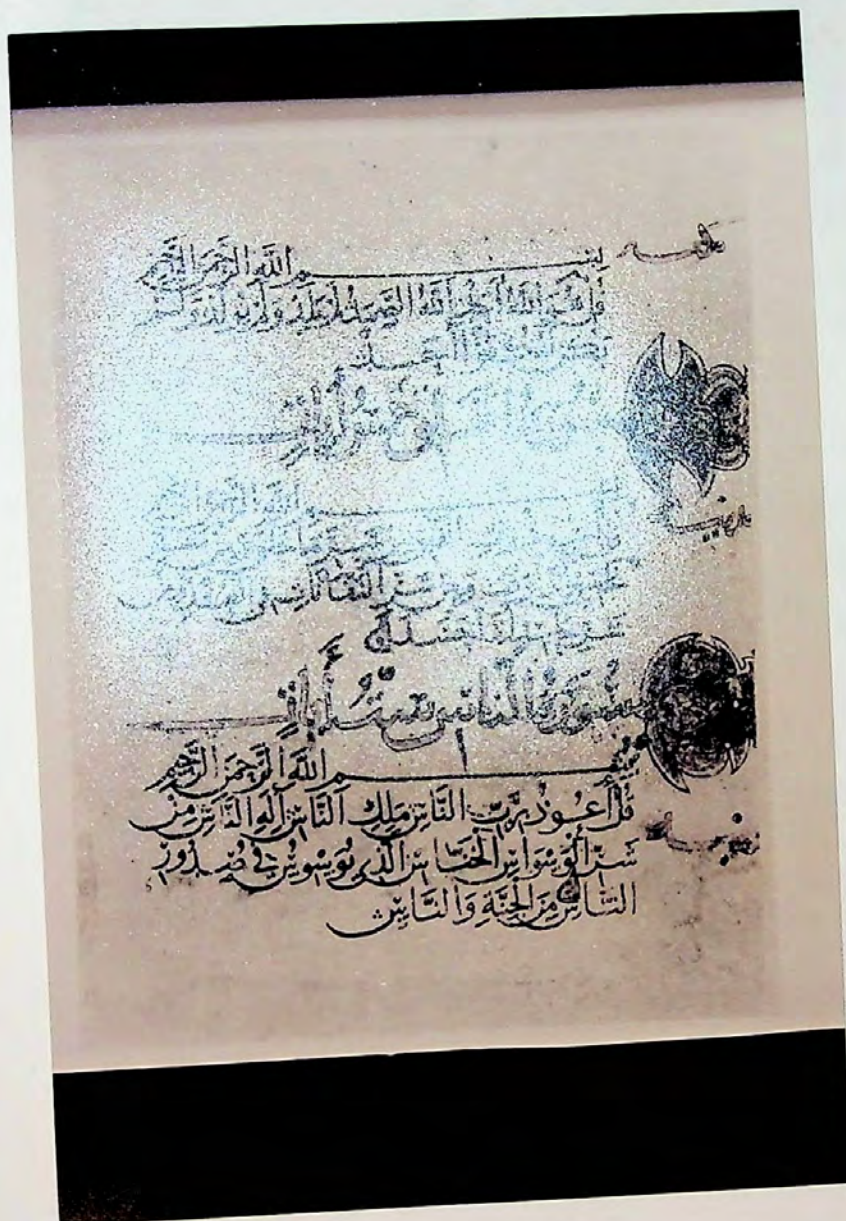 بسم الله الرحمن الرحيم
قل هو الله أحد الله الصمد لم يلد ولم يولد ولم
يكن له كفوا أحد
بسم الله الرحمن الرحيم
النفاثات في العقد ومن
شر حاسد إذا حسد
سورة الناس ست آيات
بسم الله الرحمن الرحيم
قل أعوذ برب الناس ملك الناس إله الناس من
شر الوسواس الخناس الذي يوسوس في صدور
الناس من الجنة والناس